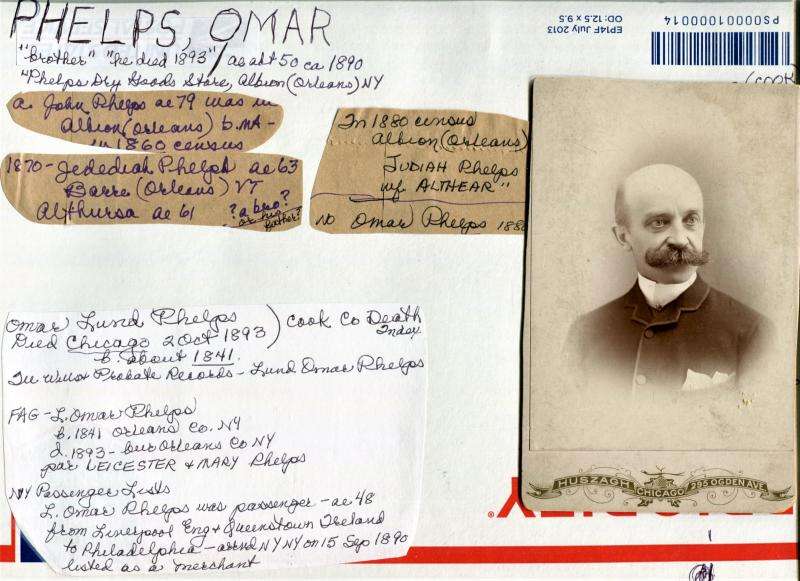 PHELPS, OMAR
"brother" "he died 1893" as abt 50 ca 1890
"Phelps Dry Goods Store, Albion (Orleans) NY
a. John Phelps ae 79 was in
Albion (Orleans) b. MA -
in 1860 census
1870 - Jedediah Phelps ae 63
Barre (Orleans) VT
Althursa ae 61
? a bro?
or his
father?
In 1880 census
Albion (Orleans)
JUDIAH Phelps
w/ ALTHEAR"
NO Omar Phelps 1880
Omar Lund Phelps
Died Chicago 2 Oct 1893) Cook Co Death
Index
b. about 1841.
In Probate Records - Lund Omar Phelps
FAG - L. Omar Phelps
b. 1841 Orleans Co. NY
d. 1893 - bur Orleans Co NY
par LEICESTER & MARY Phelps
NY Passenger Lists
L. Omar Phelps was passenger - ae 48
from Liverpool Eng & Queenstown Ireland
to Philadelphia - arrvd NY NY on 15 Sep 1890
listed as a merchant
EP14F July 2013
OD: 12.5 x 9.5
PS00001000014
HUSZAGH CHICAGO 295 OGDEN AVE.